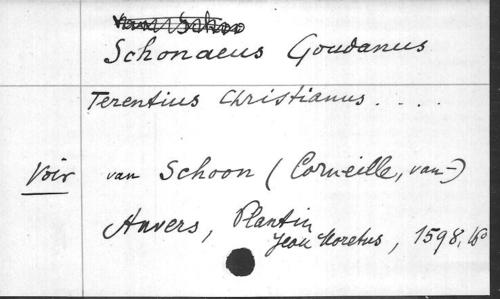 Schonaeus Goudanus
Terentius Christianus . . . .
Voir van Schoon (Corneille, van-)
Anvers, Plantin
Jean Moretus, 1598, 16o